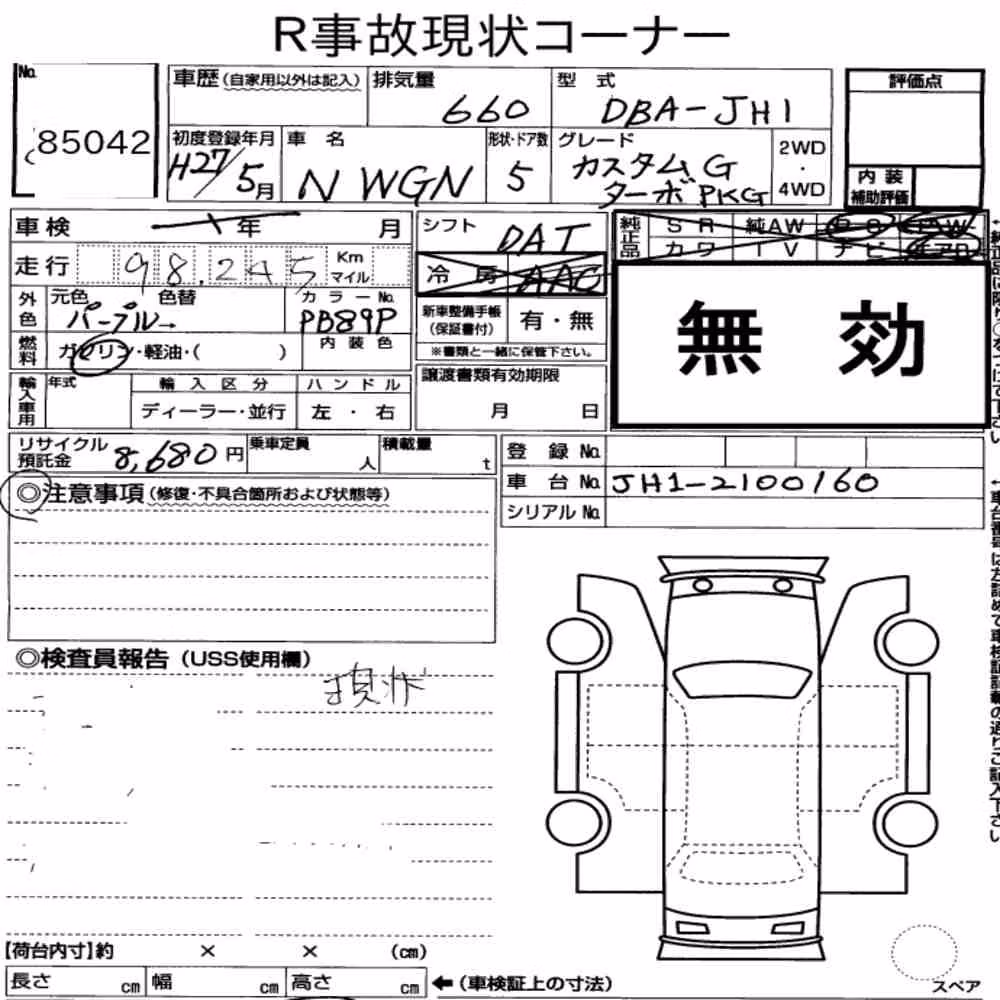 R事故現状コーナー
No. 85042
車歴(自家用以外は記入)
排気量 660
型式 DBA-JH1
評価点
初度登録年月 H27/5月
車名 N WGN
形状・ドア数 5
グレード カスタム G ターボ PKG
2WD・4WD
内装補助評価
車検 年 月
走行 98,245 Km マイル
シフト DAT
冷房 AAC
純正品 SR 純AW PS PW
カワ TV ナビ エアB
無効
外色 元色 パープル→ 色替
カラーNo. PB89P
内装色
燃料 ガソリン・軽油・( )
新車整備手帳(保証書付) 有・無
※書類と一緒に保管下さい。
輸入車用 年式
輸入区分 ディーラー・並行
ハンドル 左・右
譲渡書類有効期限
月 日
リサイクル預託金 8,680円
乗車定員 人
積載量 t
登録No.
車台No. JH1-2100160
シリアルNo.
◎注意事項(修復・不具合箇所および状態等)
◎検査員報告(USS使用欄)
現状
【荷台内寸】約 × × (cm)
長さ cm 幅 cm 高さ cm ←(車検証上の寸法)
スペア
↑車台番号は左詰めで車検証記載の通りご記入下さい